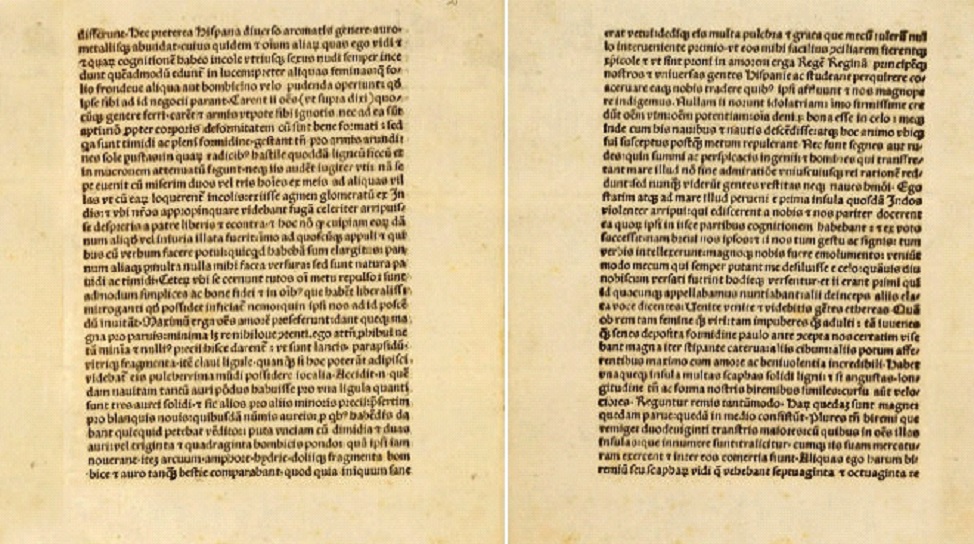 differunt· Hec preterea Hispana diuerso aromatis genere· auro·
metallisq; abundat· cuius quidem ⁊ oīum aliaꝝ quas ego vidi ⁊
⁊ quaꝝ cognitionē habeo incole vtriusq; sexus nudi semper ince
dunt quēadmodū edunt̄ in lucem· preter aliquas feminas· q̄ fo·
lio frondeue aliqua aut bombicino velo pudenda operiunt· qd̄
ipse sibi ad id negocii parant· Carent ii oēs (vt supra dixi) quo·
cūq; genere ferri· carēt ⁊ armis vtpote sibi ignotis nec ad ea sūt
apti· nō ꝓpter corporis deformitatem cū sint bene formati· sed
qꝛ sunt timidi ac pleni formidine· gestant tn̄ pro armis arundi
nes sole pustas· in quaꝝ radicibꝰ hastile quoddā ligneū siccū et
in mucronem attenuatū figunt· neq; iis audēt iugiter vti· nā se
pe euenit cū miserim duos vel tris hoīes ex meis ad aliquas vil
las vt cū eaꝝ loquerent̄ incolis: exiisse agmen glomeratū ex In
dis: ⁊ vbi nr̄os appropinquare videbant fugā celeriter arripuis
se despretis a patre liberis ⁊ econtra· ⁊ hoc nō q̄ cuipiam eoꝝ dā
num aliqd̄ vel iniuria illata fuerit: imo ad quoscūq; appuli ⁊ qui
bus cū verbum facere potui: quicqd̄ habebā sum elargitus: pan
num aliaq; ꝑmulta nulla mihi facta versura: sed sunt natura pa
uidi ac timidi· Ceteꝝ vbi se cernunt tutos oī metu repulso: sunt
admodum simplices ac bone fidei ⁊ in oībꝰ que habēt liberalissi
mi: roganti qd̄ possidet inficiat̄ nemo: quin ipsi nos ad id poscē
dū inuitāt· Maximū erga oēs amorē preseferunt: dant queq; ma·
gna pro paruis: minima lꝫ re nihiloue ꝯtenti· ego attn̄ ꝓhibui ne
tā minia ⁊ nulliꝰ precii hisce darent̄· vt sunt lancis· parapsidū·
vitriq; fragmenta· itē claui ligule· quanq̄ȝ si hoc poterāt adipisci
videbat̄ eis pulcherrima mūdi possidere iocalia· Accidit· n· quē
dam nauitam tantū auri pōdus habuisse pro vna ligula quanti
sunt tres aurei solidi· ⁊ sic alios pro aliis minoris precii· p̄sertim
pro blanquis nouis: quibusdā nūmis aureis: p qbꝰ habēdis da
bant quicquid petebat vēditor: puta vnciam cū dimidia ⁊ duas
auri: vel triginta ⁊ quadraginta bombicis pondo: quā ipsi iam
nouerant· iteꝫ arcuum· amphore· hydrie· doliiq; fragmenta bom
bice ⁊ auro tanq̄ȝ bestie comparabant· quod quia iniquum sane
erat vetui· dediq; eis multa pulchra ⁊ grata que mecū tulerā nul
lo interueniente premio· vt eos mihi facilius ꝯciliarem fierentq;
xpicole ⁊ vt sint proni in amorem erga Regē Reginā principēsq;
nostros ⁊ vniuersas gentes Hispanie· ac studeant perquirere co·
aceruare eaq; nobis tradere quibꝰ ipsi affluunt ⁊ nos magnope
re indigemus· Nullam ii norunt idolatriam: imo firmissime cre
dūt oēm vim: oēm potentiam: oīa deniqꝫ bona esse in celo: meq;
inde cum his nauibus ⁊ nautis descēdisse: atq; hoc animo vbiq;
fui susceptus postq̄ȝ metum repulerant· Nec sunt segnes aut ru·
des: quin summi ac perspicacis ingenii· ⁊ homines qui transfre·
tant mare illud nō sine admiratiōe vniuscuiusq; rei rationē red·
dunt: sed nunq̄ȝ viderūt gentes vestitas neq; naues hmōi· Ego
statim atq; ad mare illud perueni e prima insula quosdā Indos
violenter arripui: qui ediscerent a nobis ⁊ nos pariter docerent
ea quoꝝ ipsi in iisce partibus cognitionem habebant: ⁊ ex voto
successit: nam breui nos ipsos: ⁊ ii nos tum gestu ac signis: tum
verbis intellexerunt: magnoq; nobis fuere emolumento: veniūt
modo mecum qui semper putant me desiluisse e celo: quāuis diu
nobiscum versati fuerint hodieq; versentur· et ii erant primi qui
id quocunq; appellabamus nuntiabant· alii deinceps aliis ela·
ta voce dicentes: Venite venite ⁊ videbitis gētes ethereas· Quā
ob rem tam femine q̄ȝ viri: tam impuberes q̄ȝ adulti: tā iuuenes
q̄ȝ senes deposita formidine paulo ante ꝯcepta nos certatim vise
bant magna iter stipante caterua: aliis cibum: aliis potum affe·
rentibus maximo cum amore ac beniuolentia incredibili· Habet
vnaqueq; insula multas scaphas solidi ligni: ⁊ si angustas· lon·
gitudine tn̄ ac forma nostris biremibus similes: cursu aūt velo·
ciores· Reguntur remis tantūmodo· Haꝝ quedaꝫ sunt magne:
quedam parue: quedā in medio consistūt· Plures tn̄ biremi que
remiget duodeuiginti transtris maiores: cū quibus in oēs illas
insulas que innumere sunt: traiicitur· cumq; iis suam mercatu·
ram exercent ⁊ inter eos comertia fiunt· Aliquas ego harum bi·
remiū seu scaphaꝝ vidi q̄ vehebant septuaginta ⁊ octuaginta re